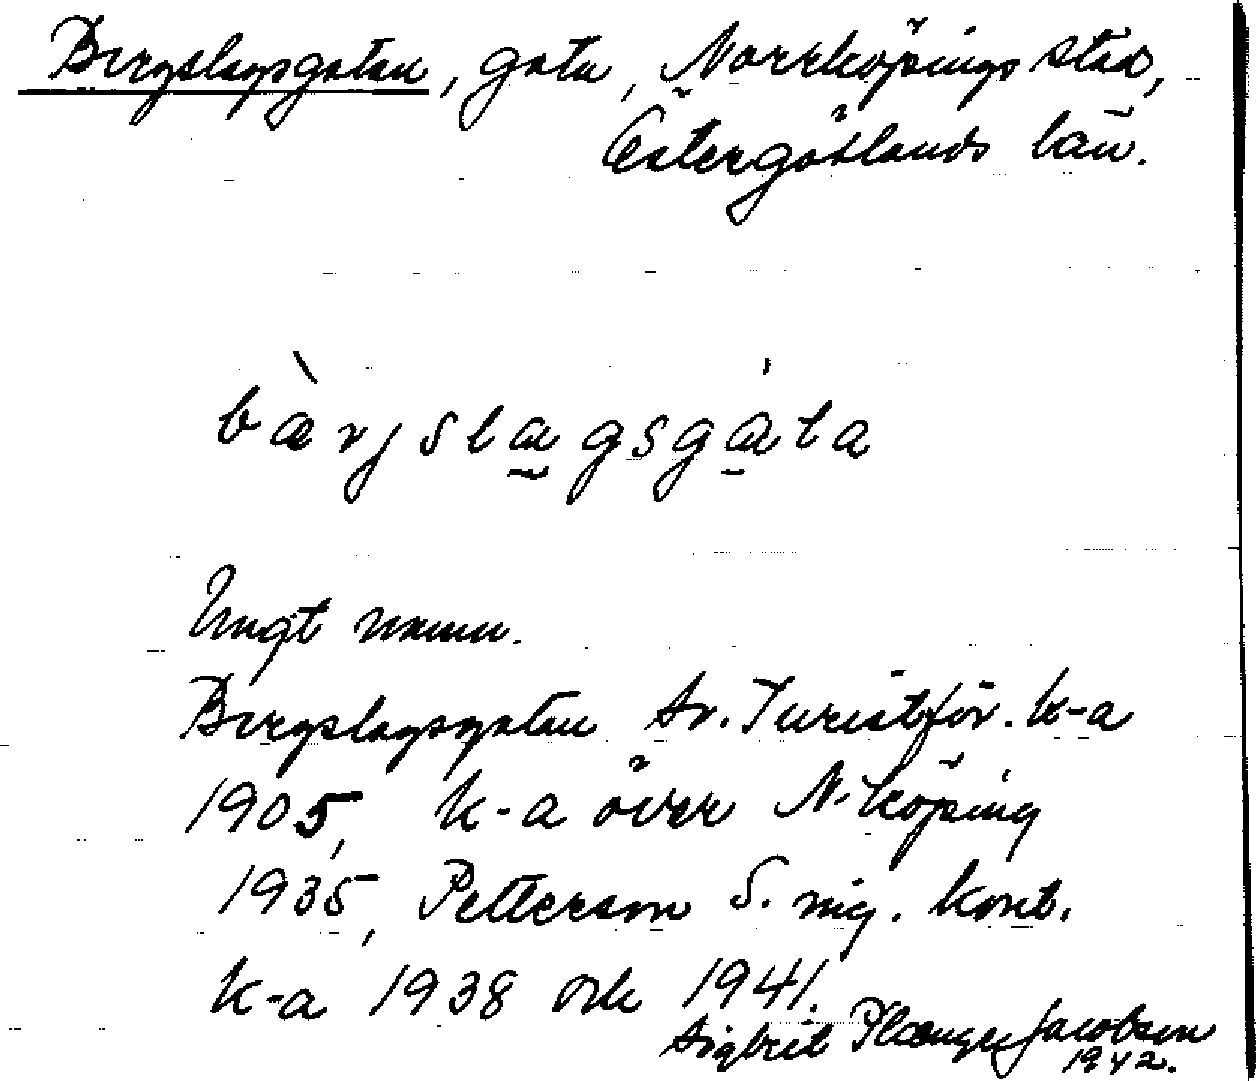 Bergslagsgatan, gata, Norrköpings stad,
Östergötlands län.
bæ̀rjslagsgáta
Ungt namn.
Bergslagsgatan Sv. Turistför. k-a
1905, k-a över N-köping
1935, Petterson S. nig. kont.
k-a 1938 och 1941.
Sigbrit Plænge Jacobson
1942.